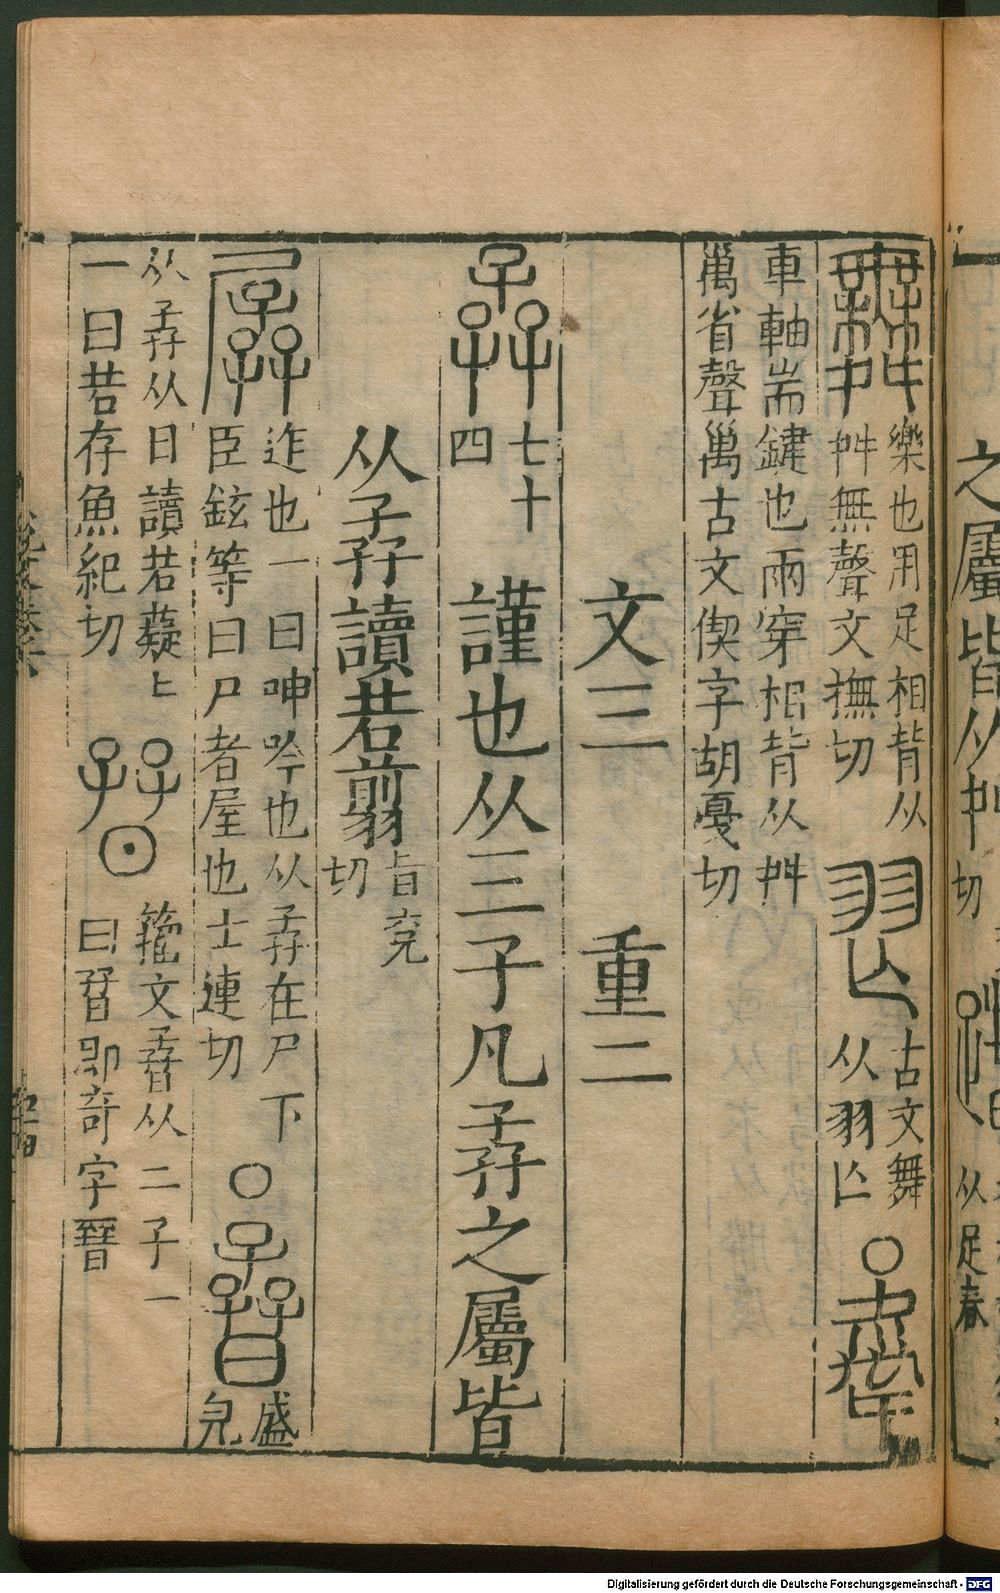 舞 樂也用足相背从
舛無聲文撫切 𦏶 古文舞
从羽亾 ○ 舝
車軸耑鍵也兩穿相背从舛
萬省聲萬古文偰字胡戞切
文三 重二
孨 七十
四 謹也从三子凡孨之屬皆
从孨讀若翦 旨兗
切
孱 迮也一曰呻吟也从孨在尸下
臣鉉等曰尸者屋也士連切 ○ 孴 盛
皃
从孨从日讀若薿上
一曰若存魚紀切 籒文孴从二子一
曰㬜即奇字㬜
之屬皆从舛
切
从足春
Digitalisierung gefördert durch die Deutsche Forschungsgemeinschaft - DFG